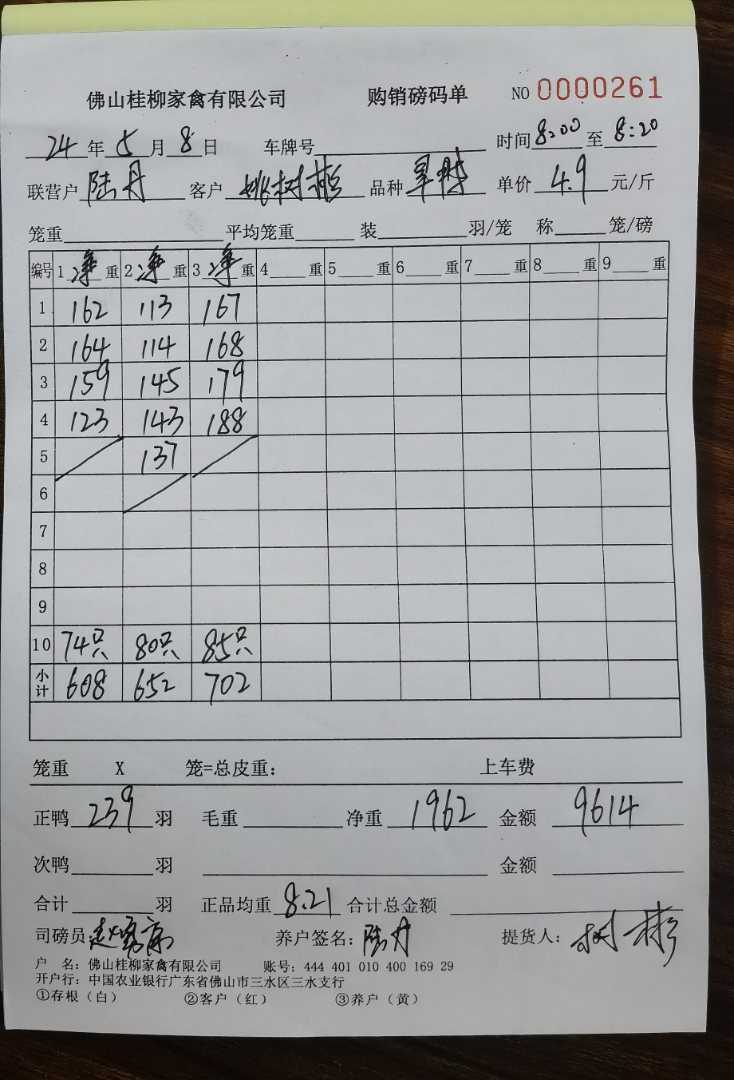 佛山桂柳家禽有限公司 购销磅码单 NO 0000261
24年5月8日 车牌号 时间8:00至8:20
联营户 陆丹 客户 姚树彬 品种 单价 4.9 元/斤
笼重 平均笼重 装 羽/笼 称 笼/磅
编号 1 净 重 2 净 重 3 净 重 4 重 5 重 6 重 7 重 8 重 9 重
1 162 113 167
2 164 114 168
3 159 145 179
4 123 143 188
5 137
6
7
8
9
10 74只 80只 85只
小计 608 652 702
笼重 X 笼=总皮重: 上车费
正鸭 239 羽 毛重 净重 1962 金额 9614
次鸭 羽 金额
合计 羽 正品均重 8.21 合计总金额
司磅员: 养户签名: 陆丹 提货人: 树彬
户 名: 佛山桂柳家禽有限公司 账号: 444 401 010 400 169 29
开户行: 中国农业银行广东省佛山市三水区三水支行
①存根（白） ②客户（红） ③养户（黄）